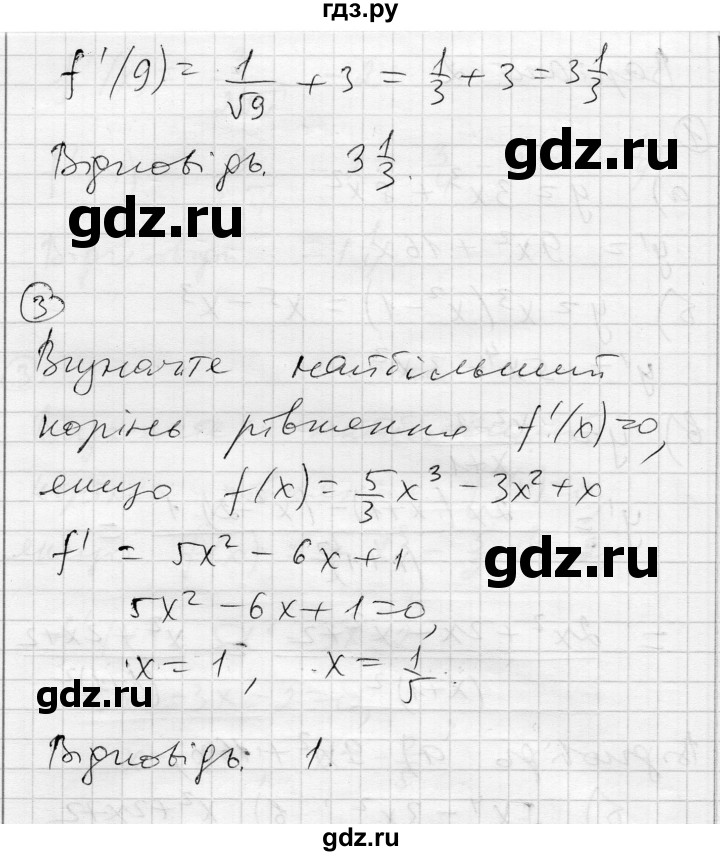 гдз.ру
f'(9) = 1/√9 + 3 = 1/3 + 3 = 3 1/3
Відповідь. 3 1/3.
gdz.ru
gdz.ru
3
Визначте найбільший
корінь рівняння f'(x)=0,
якщо f(x) = 5/3 x³ - 3x² + x
f' = 5x² - 6x + 1
gdz.ru
5x² - 6x + 1 = 0,
x = 1, x = 1/5
gdz.ru
Відповідь: 1.
gdz.ru